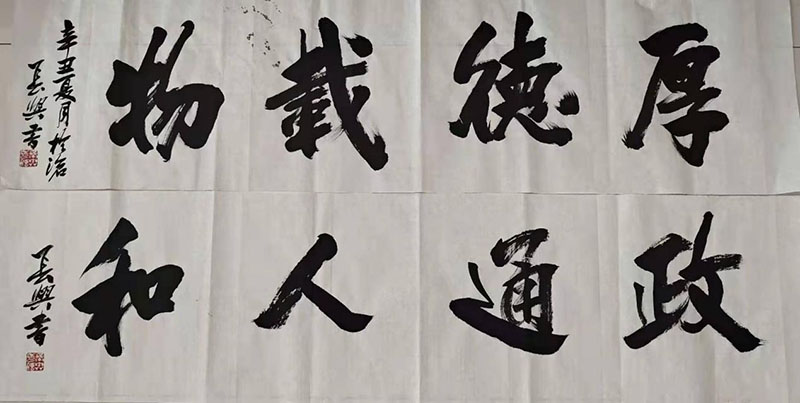 厚德載物
辛丑夏月於滄
長興書
政通人和
長興書